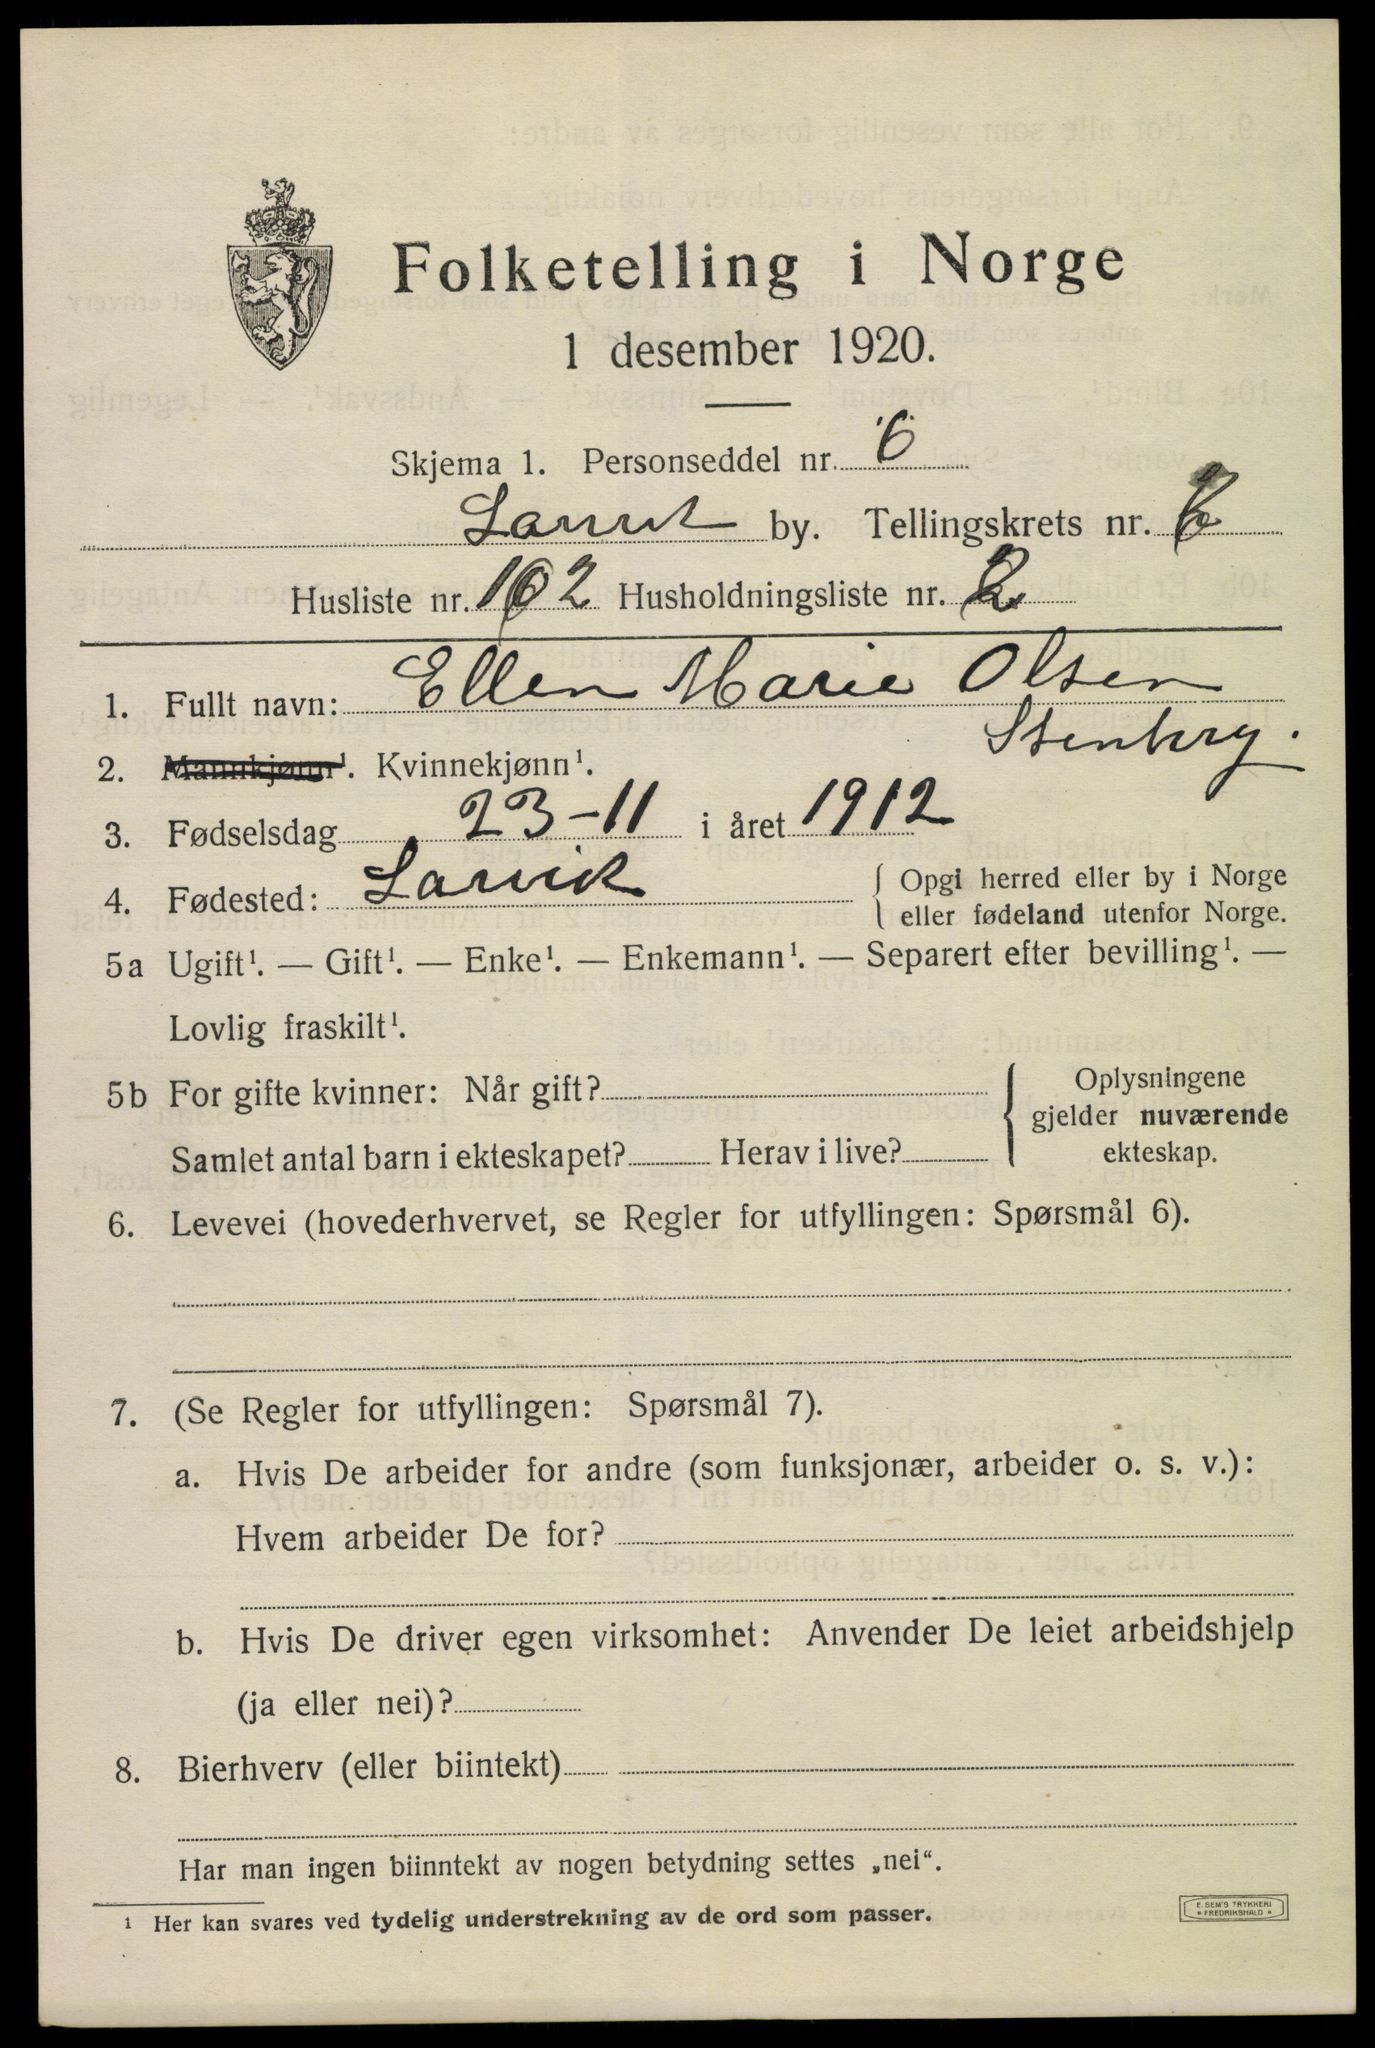 Folketelling i Norge
1 desember 1920.
Skjema 1. Personseddel nr. 6
Larvik by. Tellingskrets nr.
Husliste nr. 102 Husholdningsliste nr. 2
1. Fullt navn: Ellen Marie Olsen
Stenberg.
2. Mannkjønn¹. Kvinnekjønn¹.
3. Fødselsdag 23-11 i året 1912
4. Fødested: Larvik { Opgi herred eller by i Norge
eller fødeland utenfor Norge.
5a Ugift¹. — Gift¹. — Enke¹. — Enkemann¹. — Separert efter bevilling¹. —
Lovlig fraskilt¹.
5b For gifte kvinner: Når gift? { Oplysningene
gjelder nuværende
Samlet antal barn i ekteskapet? Herav i live? ekteskap.
6. Levevei (hovederhvervet, se Regler for utfyllingen: Spørsmål 6).
7. (Se Regler for utfyllingen: Spørsmål 7).
a. Hvis De arbeider for andre (som funksjonær, arbeider o. s. v.):
Hvem arbeider De for?
b. Hvis De driver egen virksomhet: Anvender De leiet arbeidshjelp
(ja eller nei)?
8. Bierhverv (eller biintekt)
Har man ingen biinntekt av nogen betydning settes „nei".
¹ Her kan svares ved tydelig understrekning av de ord som passer.
E. SEM'S TRYKKERI
* FREDRIKSHALD *